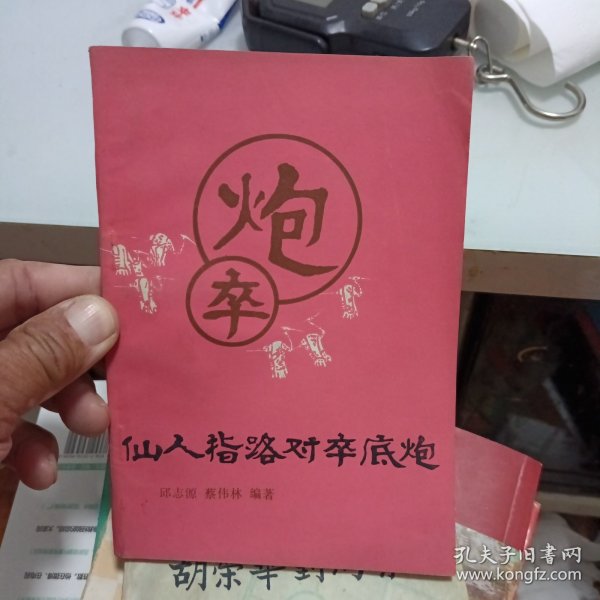 炮
卒
仙人指路对卒底炮
邱志源 蔡伟林 编著
胡荣华
孔夫子旧书网
www.kongfz.com